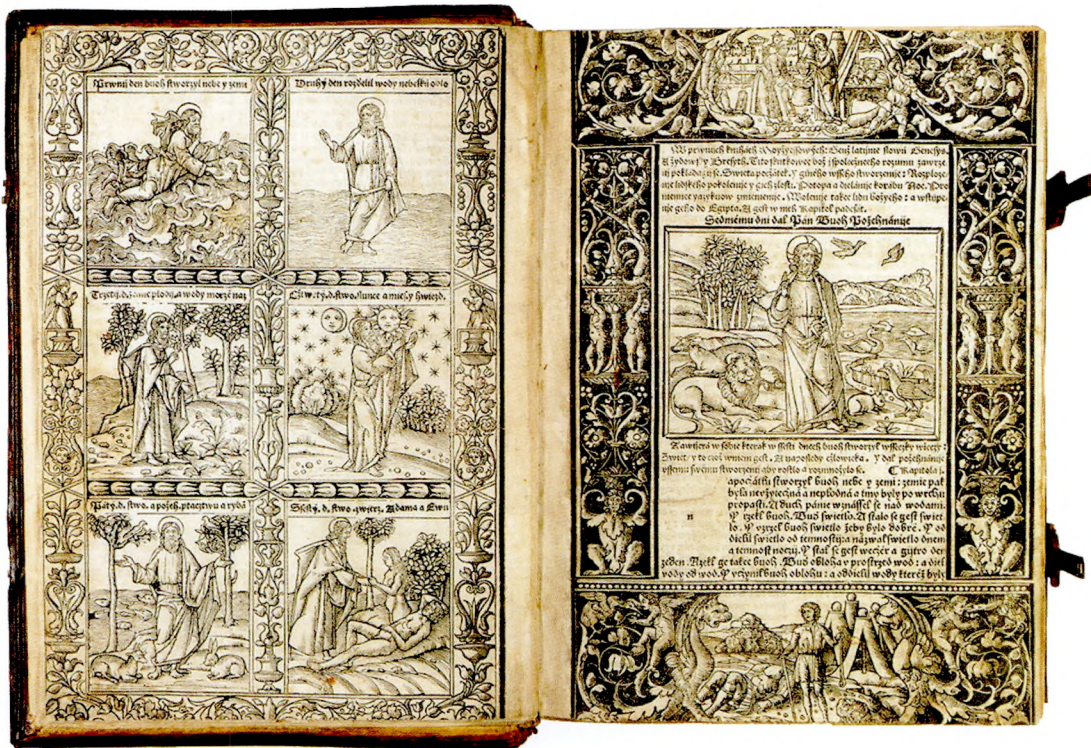 Prwnij den buoh stworzyl nebe y zemi
Druhy den rozdelil wody nebeskij odo
Trzetij.d.zemie plodij.a wody morze naz
Cztwrty.d.stwo.slunce a miesyc hwiezd.
Páty.d.stwo.a pozeh.ptactwu a rybá
Ssestij.d.stwo.zwierz.Adama a Ewu
W prwnijch knihách Moyzijssowych: Genž latinie slowu Genesys.
A zydowsky Bresyth.
pokládaji se. Swieta poczátek. Y giného wsseho stworzenie: Rozploze
nie lidského pokolenie y gich zlosti. Potopa a dielánie korábu Noe. Pro
miennie yazykuow zmienienie. Wolenie takee lidu božyeho: a wstupe
nie geho do Egipta. A gest w nich Kapitol padesát.
Sedmému dni dal Pán Buoh Požehnánije
Zawierá w sobie kterak w ssesti dnech buoh stworzyl wsseczky wieczy:
Swiet/ y to coz w niem gest. A naposledy cžlowieka. Y dal požehnánije
wssemu swému stworzeni aby rostlo a rozmnozylo se. Kapitola j.
apoczátku stworzyl buoh nebe y zemi: zemie pak
byla neužyteczná a neplodná a tmy byly po wrchu
propasti. A duch pánie wznássel se nad wodami.
n
Y rzekl buoh. Bud swietlo. A stalo se gest swiet
lo. Y vzrzel buoh swietlo žeby bylo dobré. Y od
dielil swietlo od temnosti: a nazwal swietlo dnem
a temnost noczy. Y stal se gest weczer a gytro den
geden. Rzekl ge takee buoh. Bud obloha v prostrzed wod: a diel
wody od wod. Y vczynil buoh oblohu: a oddielil wody kteréž byly